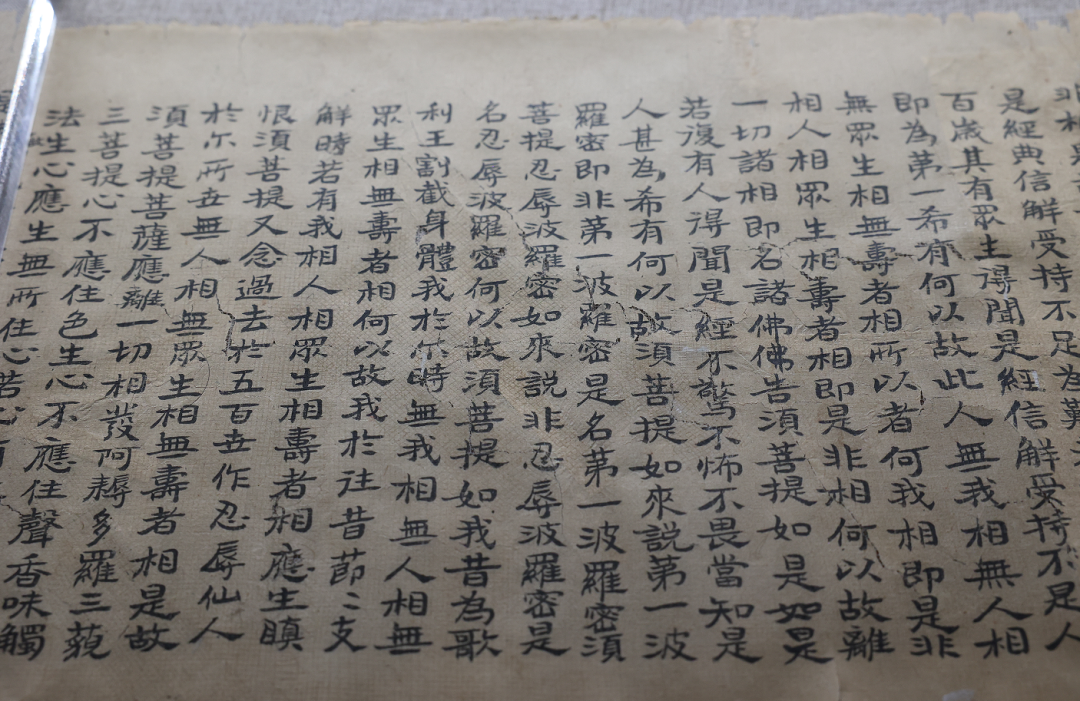 是經典信解受持不足為難
百歲其有眾生得聞是經信解受持不是人
即為第一希有何以故此人無我相無人相
無眾生相無壽者相所以者何我相即是非
相人相眾生相壽者相即是非相何以故離
一切諸相即名諸佛佛告須菩提如是如是
若復有人得聞是經不驚不怖不畏當知是
人甚為希有何以故須菩提如來說第一波
羅密即非第一波羅密是名第一波羅密須
菩提忍辱波羅密如來說非忍辱波羅密是
名忍辱波羅密何以故須菩提如我昔為歌
利王割截身體我於尒時無我相無人相無
眾生相無壽者相何以故我於往昔莭〻支
解時若有我相人相眾生相壽者相應生瞋
恨須菩提又念過去於五百世作忍辱仙人
於尒所世無人相無眾生相無壽者相是故
須菩提菩薩應離一切相發阿耨多羅三藐
三菩提心不應住色生心不應住聲香味觸
法生心應生無所住心若心